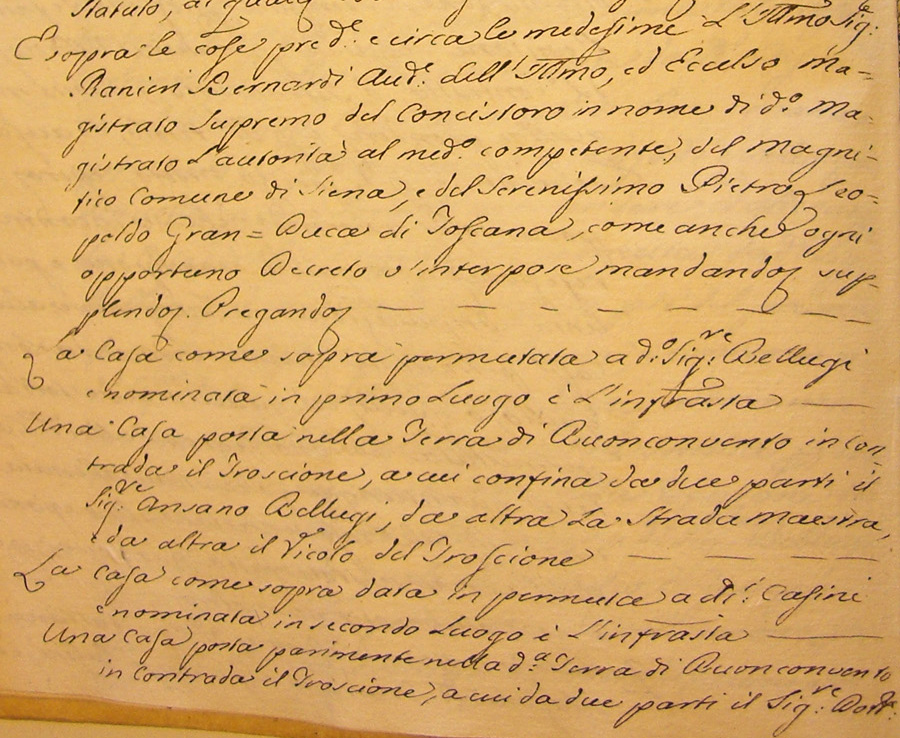 Statuto, al quale
E sopra le cose pred.e e circa le medesime L'Illmo Sig:re
Ranieri Bernardi Aud.e dell'Illmo, ed Eccelso Ma=
gistrato Supremo del Concistoro in nome di d.o Ma-
gistrato L'autorità al med.o competente, del Magni-
fico Comune di Siena, e del Serenissimo Pietro Leo-
poldo Gran= Duca di Toscana, come anche ogni
opportuno Decreto s'interpose mandando sup-
plendo. Pregando — — — — — —
La Casa come sopra permutata a d:o Sig:re Bellugi
e nominata in primo Luogo è L'infrasta ——
Una Casa posta nella Terra di Buonconvento in con-
trada il Troscione, a cui confina da due parti il
Sig:re Ansano Bellugi, da altra La Strada Maestra,
e da altra il Vicolo del Troscione — — —
La Casa come sopra data in permuta a di: Casini
e nominata in secondo Luogo è L'infrasta ——
Una Casa posta parimente nella d.a Terra di Buonconvento
in Contrada il Troscione, a cui da due parti il Sig:re Dott:e